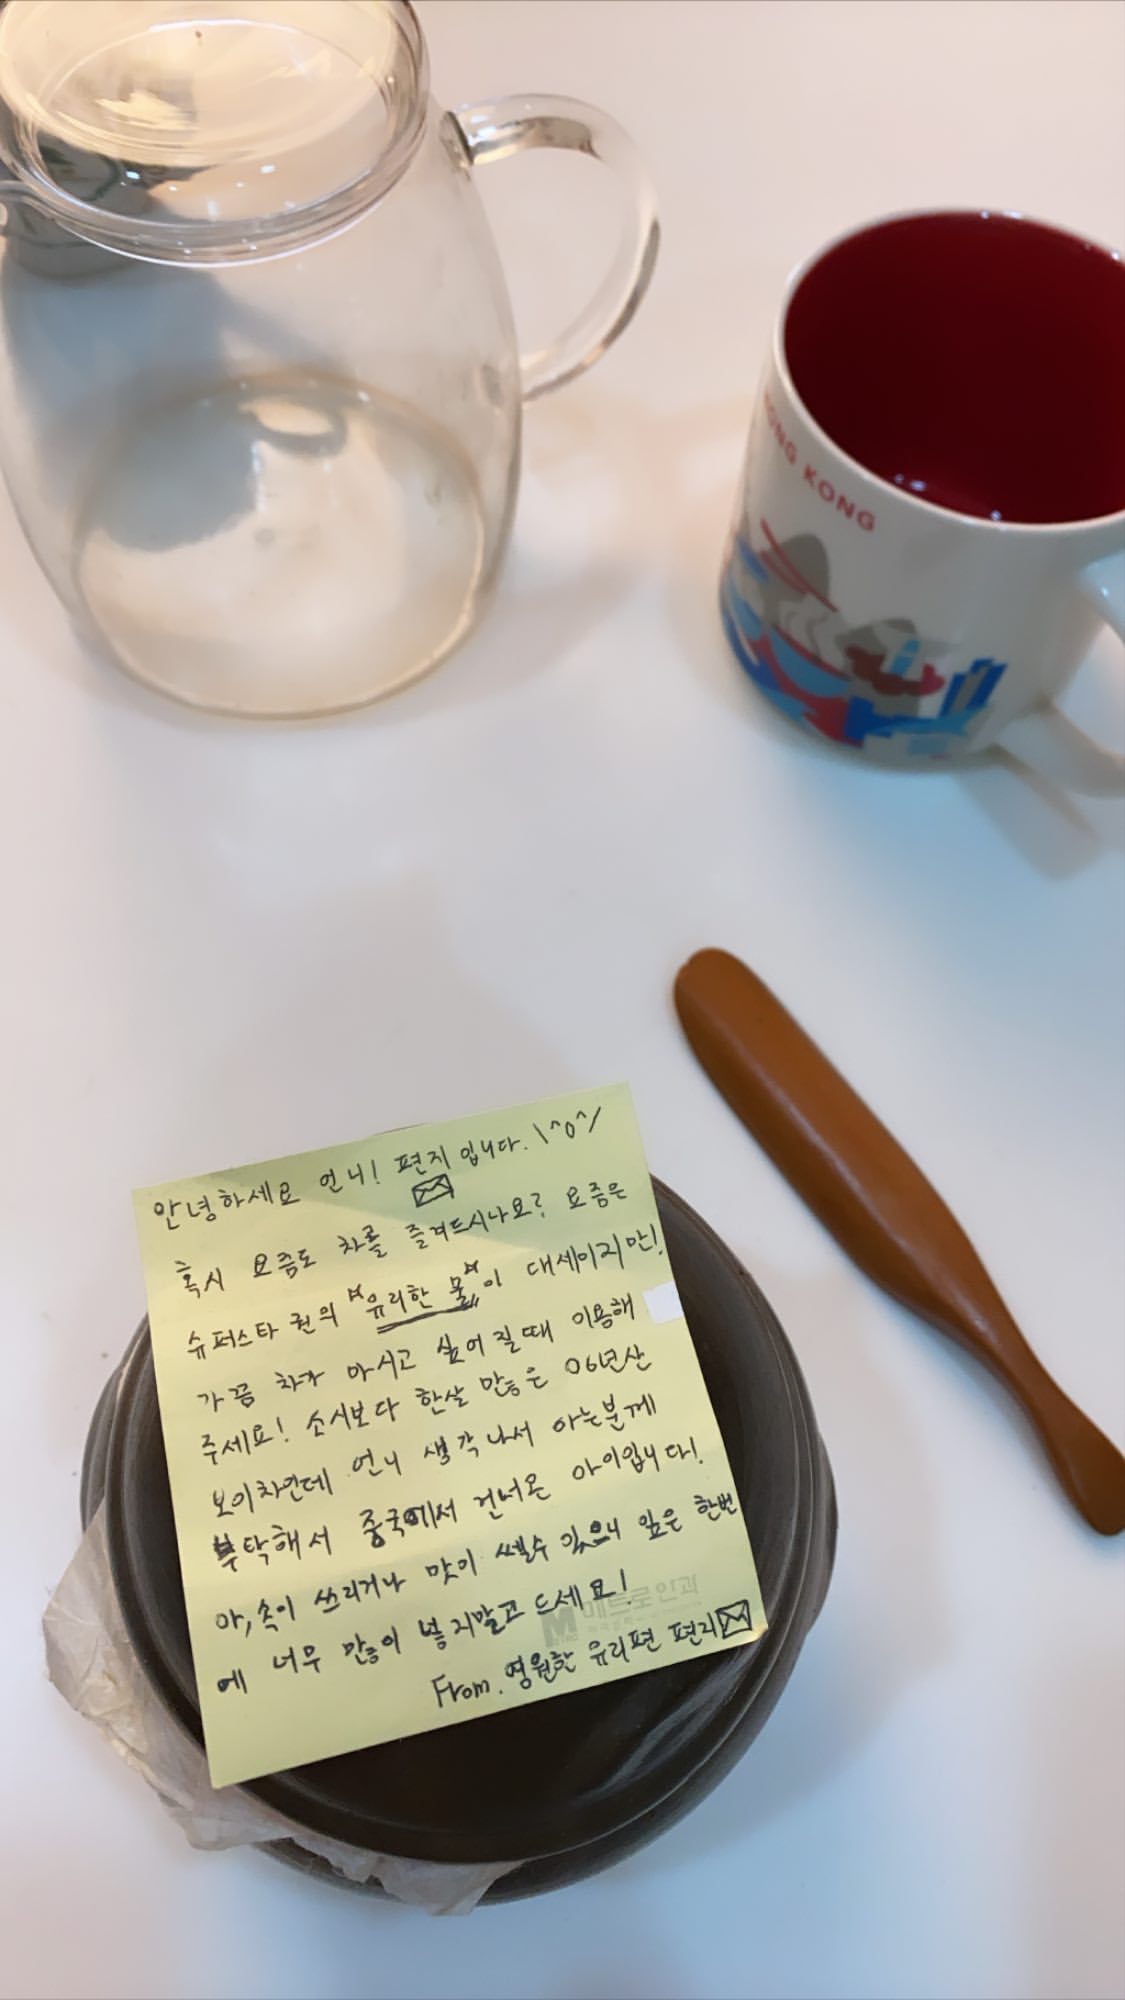 HONG KONG
안녕하세요 언니! 편지입니다. \^o^/
혹시 요즘도 차를 즐겨드시나요? 요즘은
슈퍼스타 권의 "유리한 물"이 대세이지만!
가끔 차가 마시고 싶어질때 이용해
주세요! 소시보다 한살 많은 06년산
보이차인데 언니 생각나서 아는분께
부탁해서 중국에서 건너온 아이입니다!
아, 속이 쓰리거나 맛이 쎌수 있으니 잎은 한번
에 너무 많이 넣지말고 드세요!
From. 영원한 유리편 편지